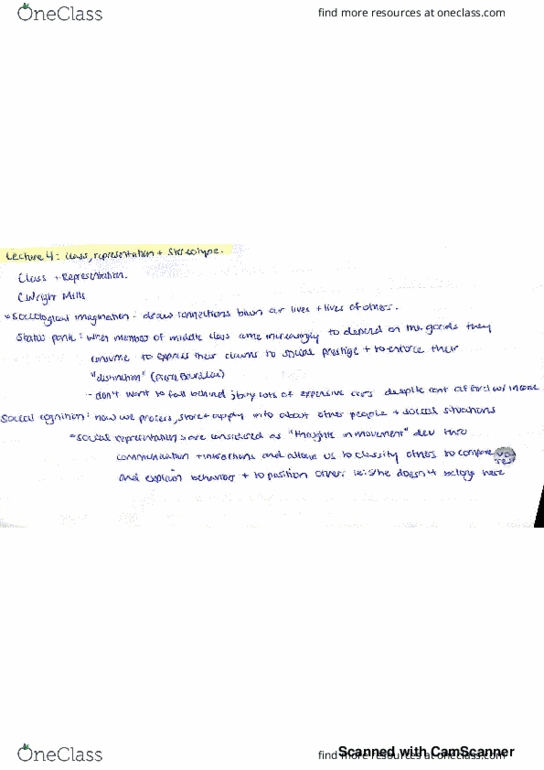 OneClass
find more resources at oneclass.com
Lecture 4: class, representation + stereotype.
Class + Representation.
C Wright Mills
sociological imagination: draw connections btwn our lives + lives of others.
Status panic: when member of middle class come increasingly to depend on the goods they
consume to express their claims to social prestige + to enforce their
"distinction" (Pierre Bourdieu)
- don't want to fall behind buy lots of expensive cars despite cant afford w/ income
Social cognition: how we process, store + apply info about other people + social situations
social representations are considered as "thoughts in movement" dev thro
communication + interactions and allow us to classify others to compare
and explain behaviour + to position others ie: s/he doesn't belong here
OneClass
find more resources at oneclass.com
Scanned with CamScanner